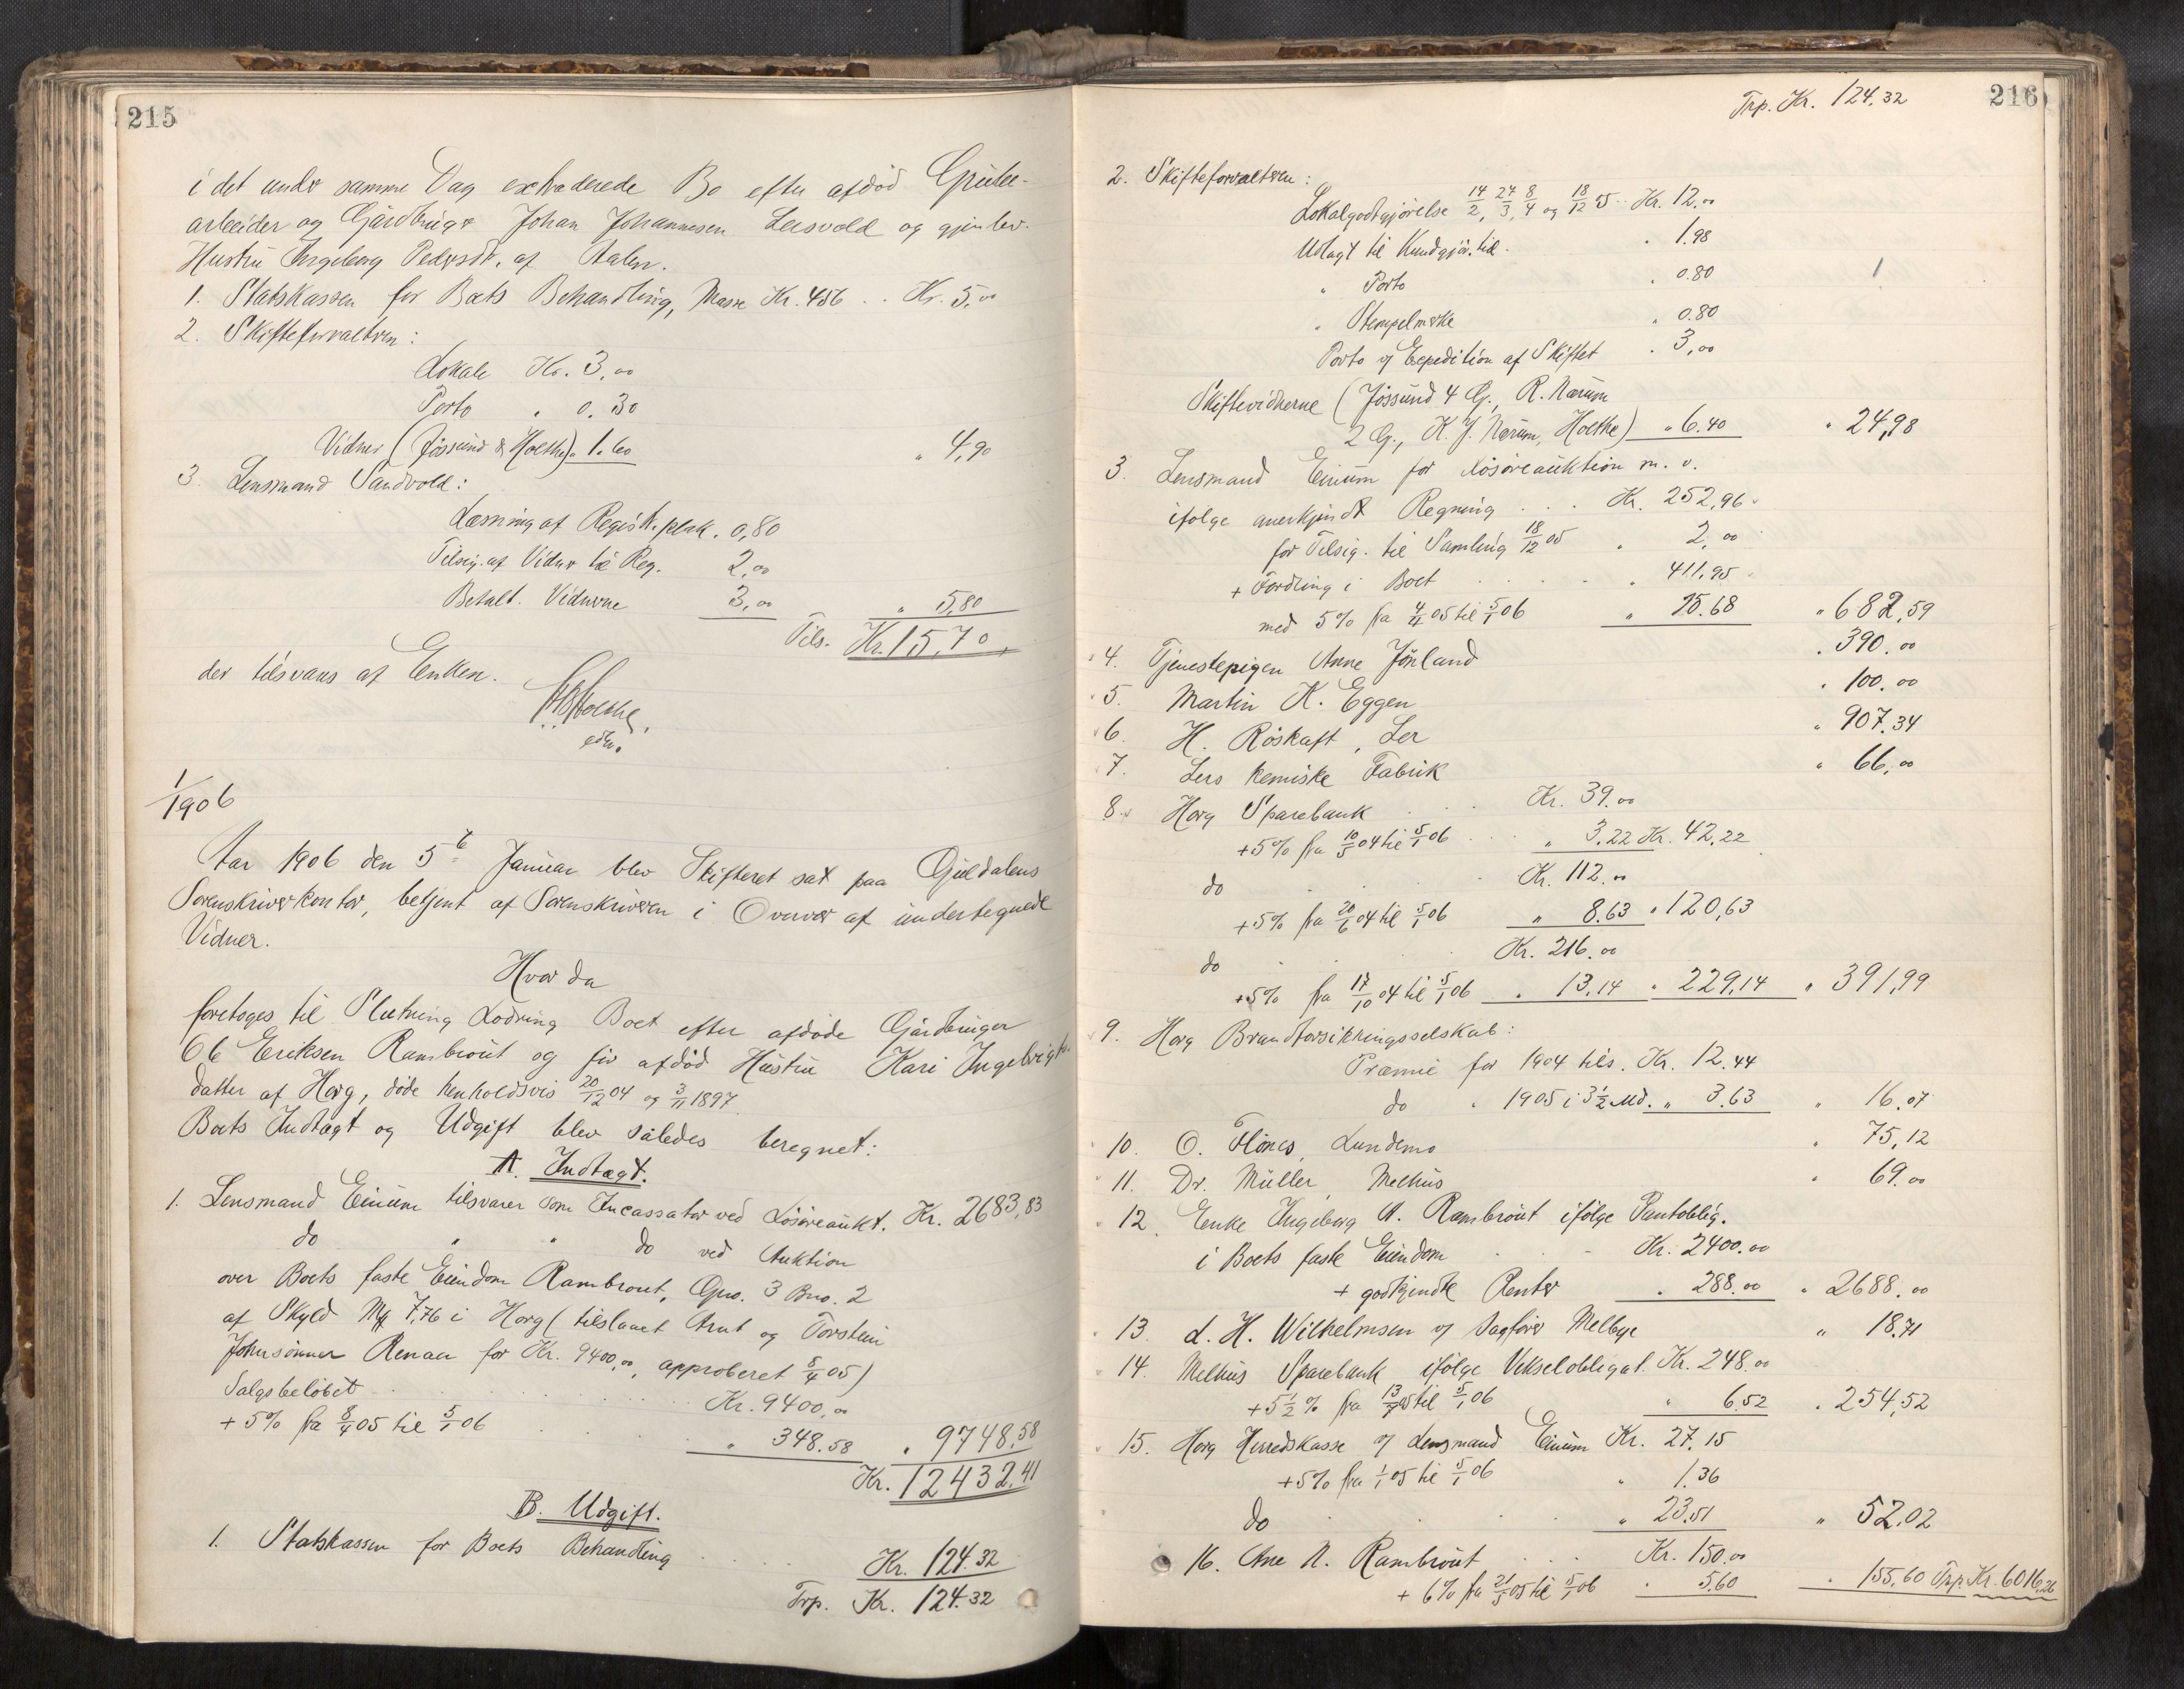 215
i det under samme Dag extraderede Bo efter afdød Grube-
arbeider og Gårdbruger Johan Johannesen Lersvold og gjenlev.
Hustru Ingeborg Pedersdt. af Aalen.
1. Statskassen for Boets Behandling, Masse Kr. 456 .. Kr. 5.00
2. Skifteforvalteren:
Lokale Kr. 3,00
Porto " 0.30
Vidner (Jøssund & Hoethe) " 1.60 " 4,90
3. Lensmand Sandvold:
Læsning af Registr.plak. 0,80
Tilsig. af Vidner til Reg. 2,00
Betalt. Vidnerne 3,00 " 5,80
Tils. Kr. 15,70
der tilsvares af Enken.
1/1906
Aar 1906 den 5te Januar blev Skifteret sat paa Guldalens
Sorenskriverkontor, betjent af Sorenskriveren i Overvær af undertegnede
Vidner.
Hvor da
foretoges til Slutning Lodning Boet efter afdøde Gårdbruger
Ole Eriksen Rambrøut og før afdød Hustru Kari Ingebrigts-
datter af Horg, døde henholdsvis 20/12 04 og 3/11 1897.
Boets Indtægt og Udgift blev således beregnet:
A. Indtægt.
1. Lensmand Einum tilsvarer som Incassator ved Løsøreaukt. Kr. 2683,83
do " " do ved Auktion
over Boets faste Eiendom Rambrout, Gno. 3 Bno. 2
af Skyld Mk 7,76 i Horg (tilslaaet Arnt og Torstein
Johnsønner Renaa for Kr. 9400,00, approberet 5/4 05)
Salgsbeløbet Kr. 9400,00
+ 5% fra 8/4 05 til 5/1 06 " 348.58 " 9748,58
Kr. 12432,41
B. Udgift.
1. Statskassen for Boets Behandling Kr. 124.32
Trp. Kr. 124.32
Trp. Kr. 124.32 216
2. Skifteforvalteren:
Lokalgodtgjørelse 14/2, 24/3, 8/4 og 18/12 05 .. Kr. 12.00
Udlagt til Kundgjør. tid. " 1.98
" Porto " 0.80
" Stempelmerke " 0.80
Porto og Expedition af Skiftet " 3,00
Skiftevidnerne (Jøssund 4 G., R. Nærum
2 G., K. J. Nærum, Hoethe) " 6.40 " 24,98
3. Lensmand Einum for Løsøreauktion m. v.
ifølge anerkjendt Regning ... Kr. 252,96
for Tilsig. til Samling 18/12 05 " 2,00
+ Fordring i Boet " 411,95
med 5% fra 4/4 05 til 5/1 06 " 15.68 " 682,59
4. Tjenestepigen Anne Jønland " 390.00
5. Martin K. Eggen " 100.00
6. H. Røskaft, Ler " 907.34
7. Lers kemiske Fabrik " 66,00
8. Horg Sparebank Kr. 39.00
+5% fra 10/5 04 til 5/1 06 " 3.22 Kr. 42,22
do Kr. 112.00
+5% fra 20/6 04 til 5/1 06 " 8.63 " 120,63
do Kr. 216.00
+5% fra 17/10 04 til 5/1 06 " 13,14 " 229,14 " 391,99
9. Horg Brandforsikringsselskab:
Præmie for 1904 tils. Kr. 12.44
do " 1905 i 3 1/2 Md. " 3.63 " 16,07
10. O. Flønes, Lundemo " 75,12
11. Dr. Müller, Melhus " 69.00
12. Enke Ingeborg A. Rambrøut ifølge Pantoblig.
i Boets faste Eiendom Kr. 2400.00
+ godkjendte Renter " 288.00 " 2688.00
13. L. H. Wilhelmsen v/ Sagfører Melbye " 18.71
14. Melhus Sparebank ifølge Vekselobligat. Kr. 248.00
+5 1/2 % fra 13/7 05 til 5/1 06 " 6.52 " 254,52
15. Horg Herredskasse v/ Lensmand Einum Kr. 27.15
+5% fra 1/1 05 til 5/1 06 " 1.36
do " 23.51 " 52.02
16. Ane N. Rambrøut Kr. 150.00
+ 6% fra 21/5 05 til 5/1 06 " 5.60 " 155,60 Trp. Kr. 6016,26